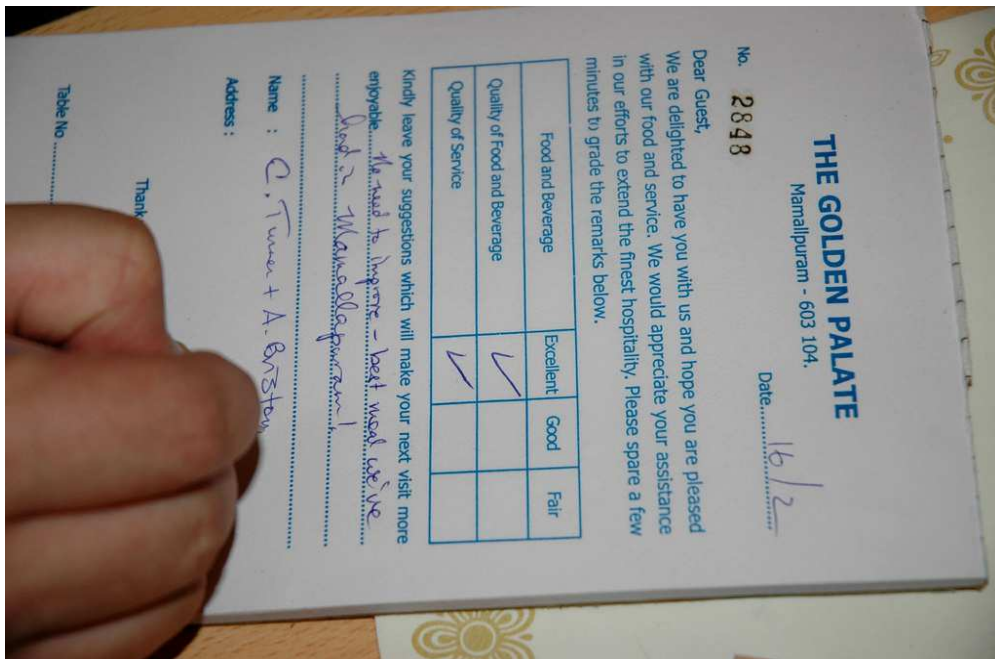 THE GOLDEN PALATE
Mamallpuram - 603 104.
No. 2848 Date..........16/2
Dear Guest,
We are delighted to have you with us and hope you are pleased
with our food and service. We would appreciate your assistance
in our efforts to extend the finest hospitality. Please spare a few
minutes to grade the remarks below.
Food and Beverage Excellent Good Fair
Quality of Food and Beverage ✓
Quality of Service ✓
Kindly leave your suggestions which will make your next visit more
enjoyable. No need to improve - best meal we've
had in Mamallapuram!
Name : C. Turner + A. Briston
Address :
Thank
Table No